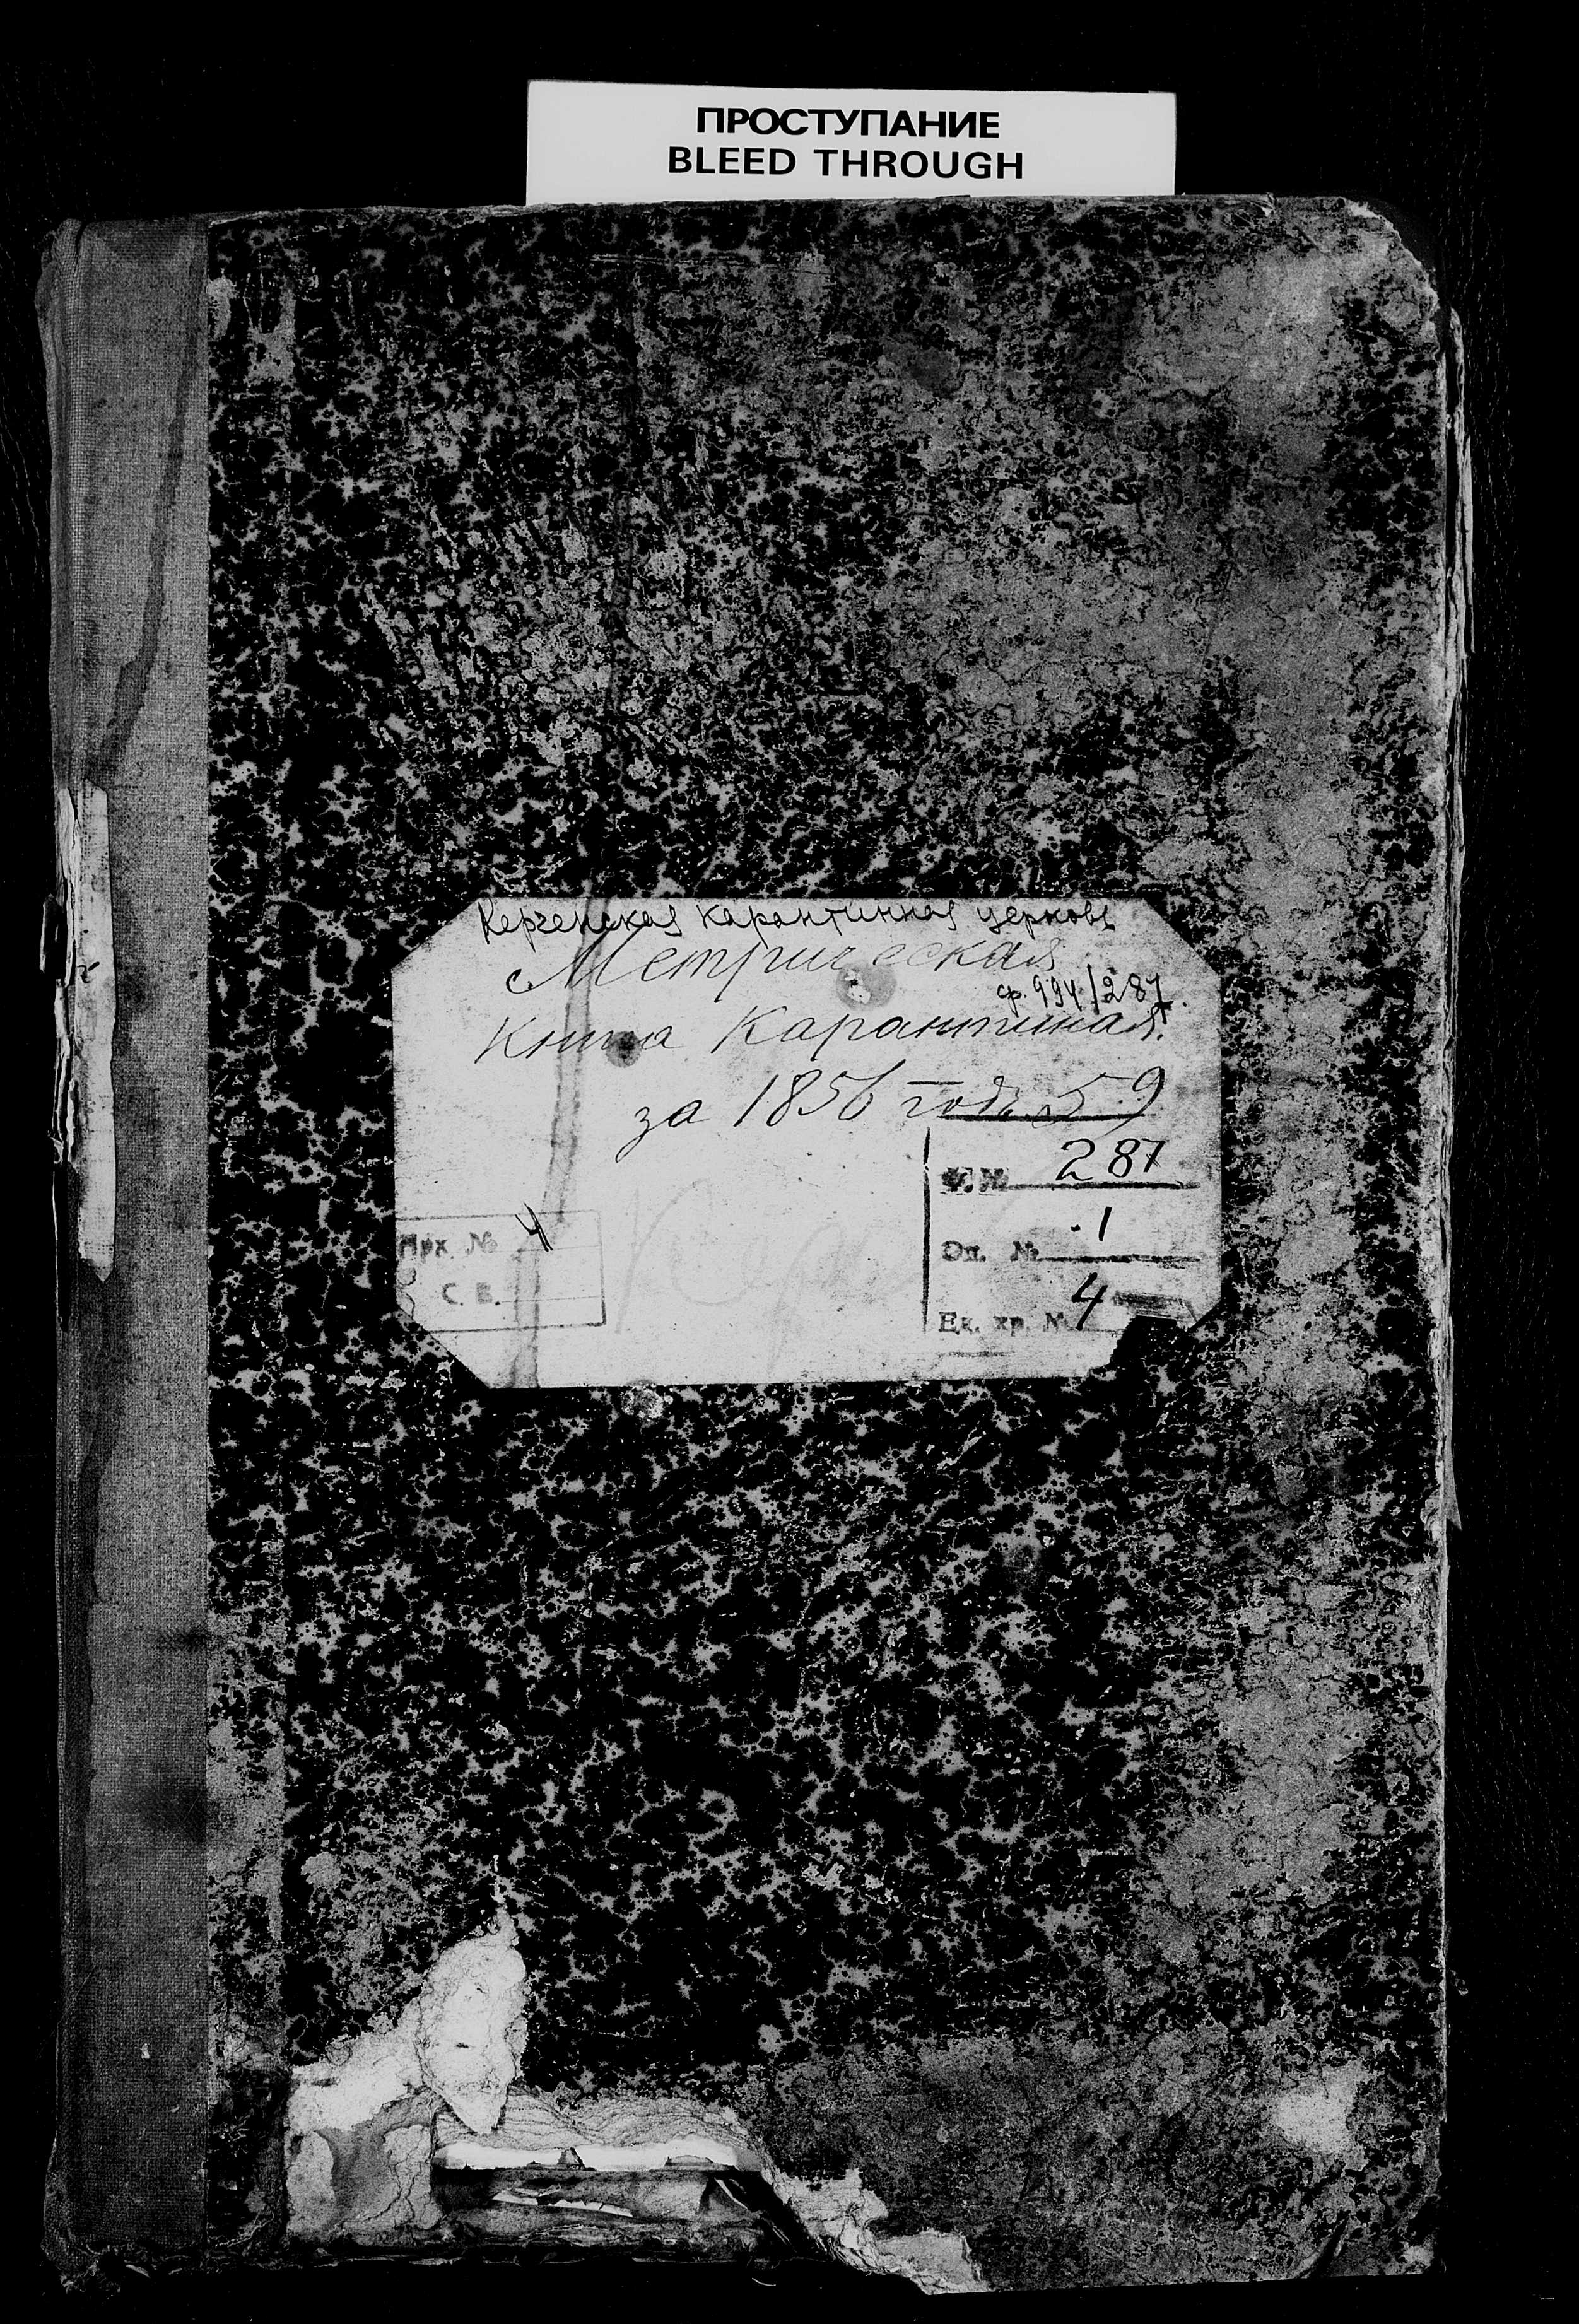 ПРОСТУПАНИЕ
BLEED THROUGH
Керченская карантинная церковь
Метрическая
ф. 994/287.
Книга Карантинная.
за 1856 годъ 59
287
Оп. № 1
Ед. хр. № 4
Арх. № 4
С. Е.